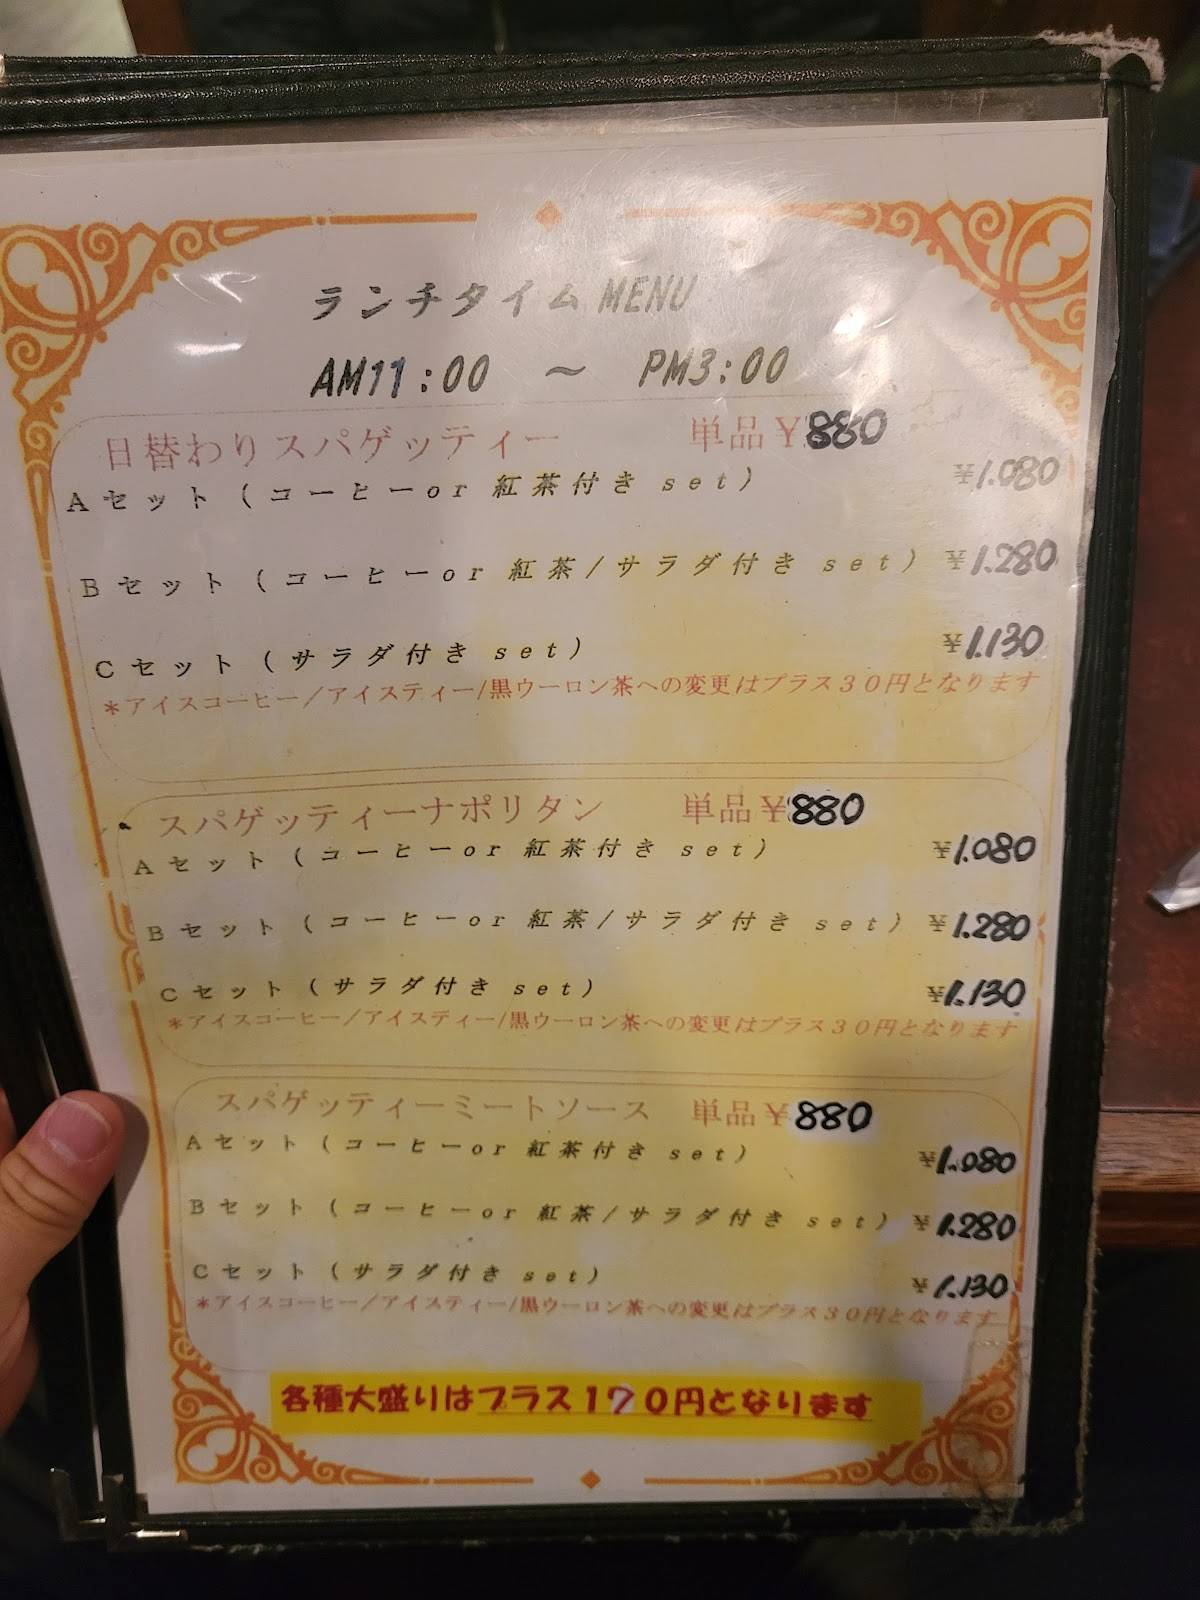 ランチタイムMENU
AM11:00 ～ PM3:00
日替わりスパゲッティー 単品¥880
Aセット(コーヒーor 紅茶付き set) ¥1.080
Bセット(コーヒーor 紅茶/サラダ付き set) ¥1.280
Cセット(サラダ付き set) ¥1.130
*アイスコーヒー/アイスティー/黒ウーロン茶への変更はプラス30円となります
スパゲッティーナポリタン 単品¥880
Aセット(コーヒーor 紅茶付き set) ¥1.080
Bセット(コーヒーor 紅茶/サラダ付き set) ¥1.280
Cセット(サラダ付き set) ¥1.130
*アイスコーヒー/アイスティー/黒ウーロン茶への変更はプラス30円となります
スパゲッティーミートソース 単品¥880
Aセット(コーヒーor 紅茶付き set) ¥1.080
Bセット(コーヒーor 紅茶/サラダ付き set) ¥1.280
Cセット(サラダ付き set) ¥1.130
*アイスコーヒー/アイスティー/黒ウーロン茶への変更はプラス30円となります
各種大盛りはプラス170円となります